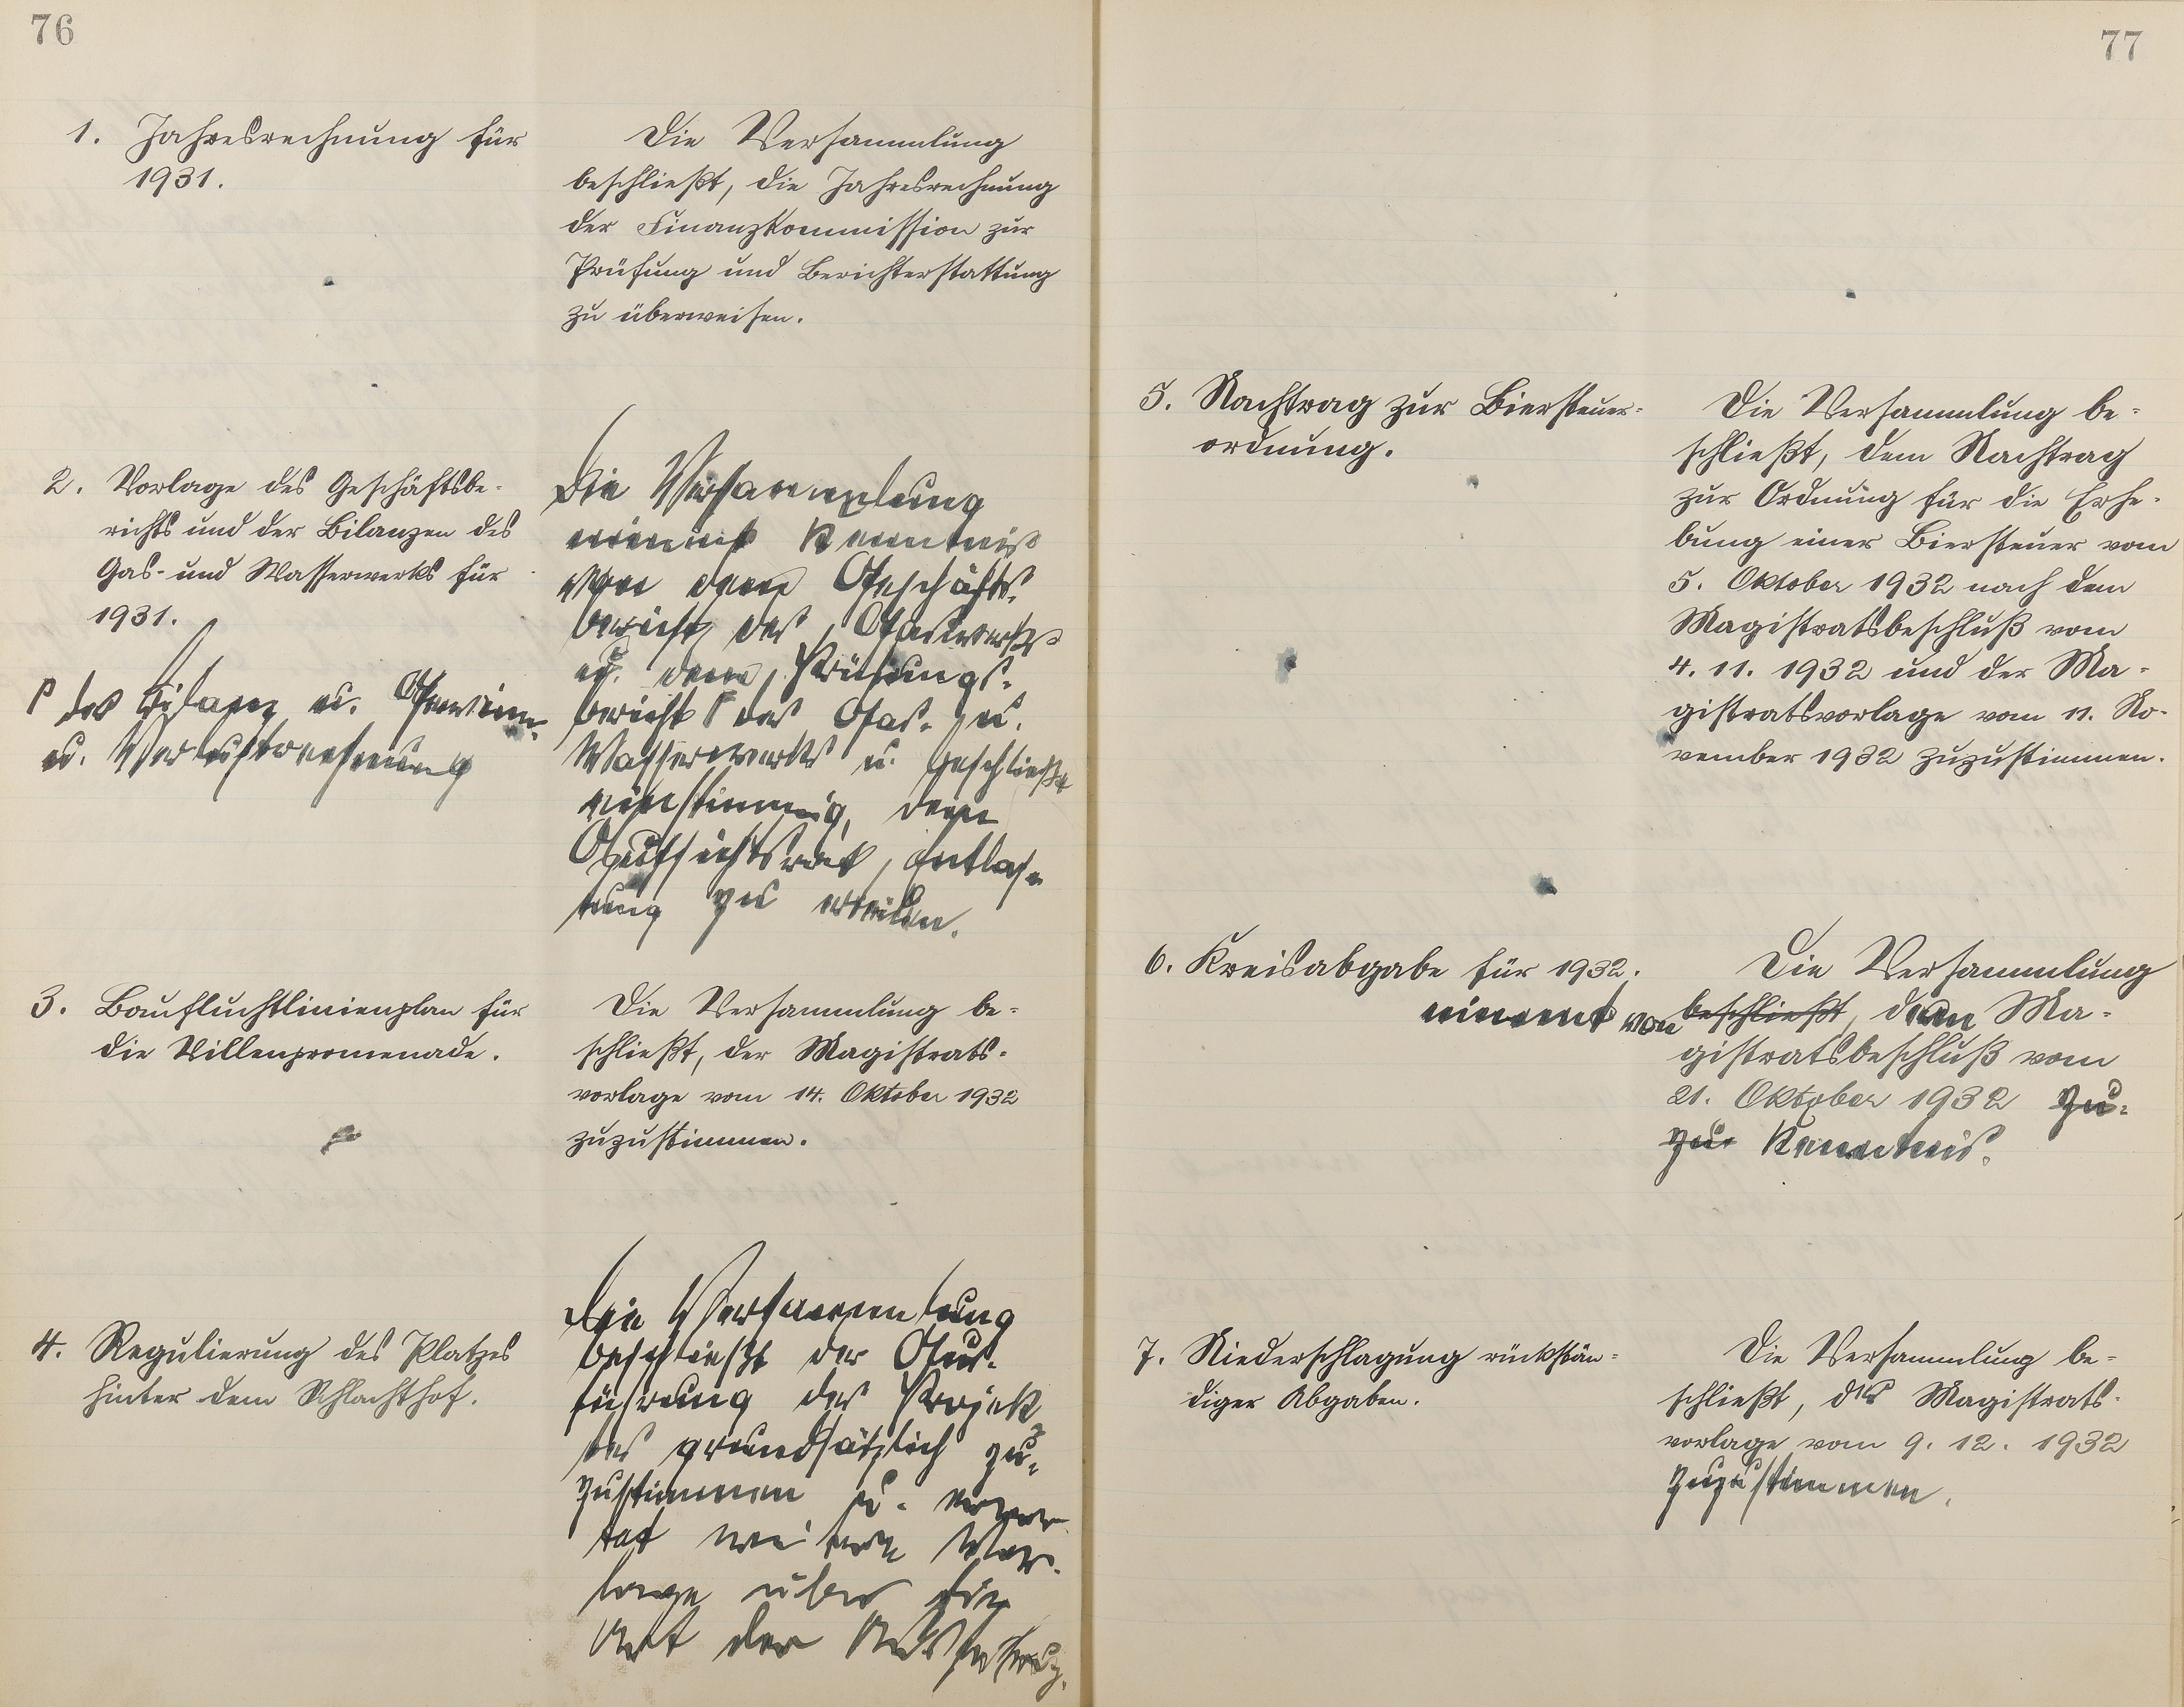 76
1. Jahresrechnung für
1931.
Die Versammlung
beschließt, die Jahresrechnung
der Finanzkommission zur
Prüfung und Berichterstattung
zu überweisen.
2. Vorlage des Geschäftsbe-
richts und der Bilanzen des
Gas- und Wasserwerks für
1931.
Γ der Bilanz u. Gewinn-
u. Verlustrechnung
Die Versammlung
nimmt Kenntnis
von dem Geschäfts-
bericht des Gaswerks
u. dem Prüfungs-
bericht Γ des Gas- u.
Wasserwerks u. beschließt
einstimmig, dem
Aufsichtsrat Entlas-
tung zu erteilen.
3. Baufluchtlinienplan für
die Villenpromenade.
Die Versammlung be-
schließt, der Magistrats-
vorlage vom 14. Oktober 1932
zuzustimmen.
4. Regulierung des Platzes
hinter dem Schlachthof.
Die Versammlung
beschließt der Aus-
führung des Projek-
tes grundsätzlich zu-
zustimmen u. erwar-
tet weitere Vor-
lage über die
Art der Ausführung.
77
5. Nachtrag zur Biersteuer-
ordnung.
Die Versammlung be-
schließt, dem Nachtrag
zur Ordnung für die Erhe-
bung einer Biersteuer vom
5. Oktober 1932 nach dem
Magistratsbeschluß vom
4. 11. 1932 und der Ma-
gistratsvorlage vom 11. No-
vember 1932 zuzustimmen.
6. Kreisabgabe für 1932.
Die Versammlung
nimmt von beschließt, dem Ma-
gistratsbeschluß vom
21. Oktober 1932 zu-
zur Kenntnis.
7. Niederschlagung rückstän-
diger Abgaben.
Die Versammlung be-
schließt, der Magistrats-
vorlage vom 9. 12. 1932
zuzustimmen.